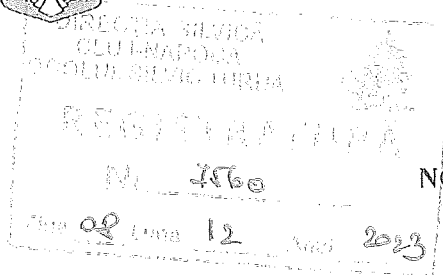 DIRECȚIA SILVICĂ
CLUJ-NAPOCA
OCOLUL SILVIC TURDA
REGISTRATURA
Nr. 7560
Ziua 08 Luna 12 Anul 2023
N